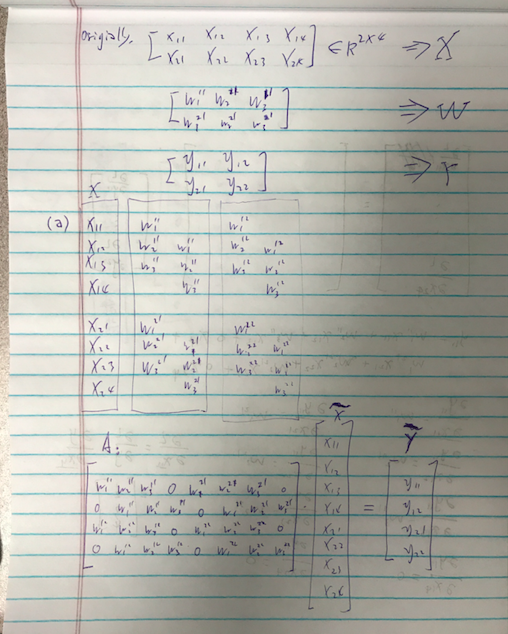 Originally, [ x11 x12 x13 x14 ] ∈ R^2×4 ⇒ X
[ x21 x22 x23 x24 ]
[ w1^11 w2^11 w3^11 ] ⇒ W
[ w1^21 w2^21 w3^21 ]
[ y11 y12 ] ⇒ Y
[ y21 y22 ]
X
(a) x11 w1^11 w1^12
x12 w2^11 w1^11 w2^12 w1^12
x13 w3^11 w2^11 w3^12 w2^12
x14 w3^11 w3^12
x21 w1^21 w1^22
x22 w2^21 w1^21 w2^22 w1^22
x23 w3^21 w2^21 w3^22 w2^22
x24 w3^21 w3^22
A: X̃ Ỹ
[ w1^11 w2^11 w3^11 0 w1^21 w2^21 w3^21 0 ]
[ 0 w1^11 w2^11 w3^11 0 w1^21 w2^21 w3^21 ]
[ w1^12 w2^12 w3^12 0 w1^22 w2^22 w3^22 0 ]
[ 0 w1^12 w2^12 w3^12 0 w1^22 w2^22 w3^22 ]
· [ x11 x12 x13 x14 x21 x22 x21 x24 ]
= [ y11 y12 y21 y22 ]